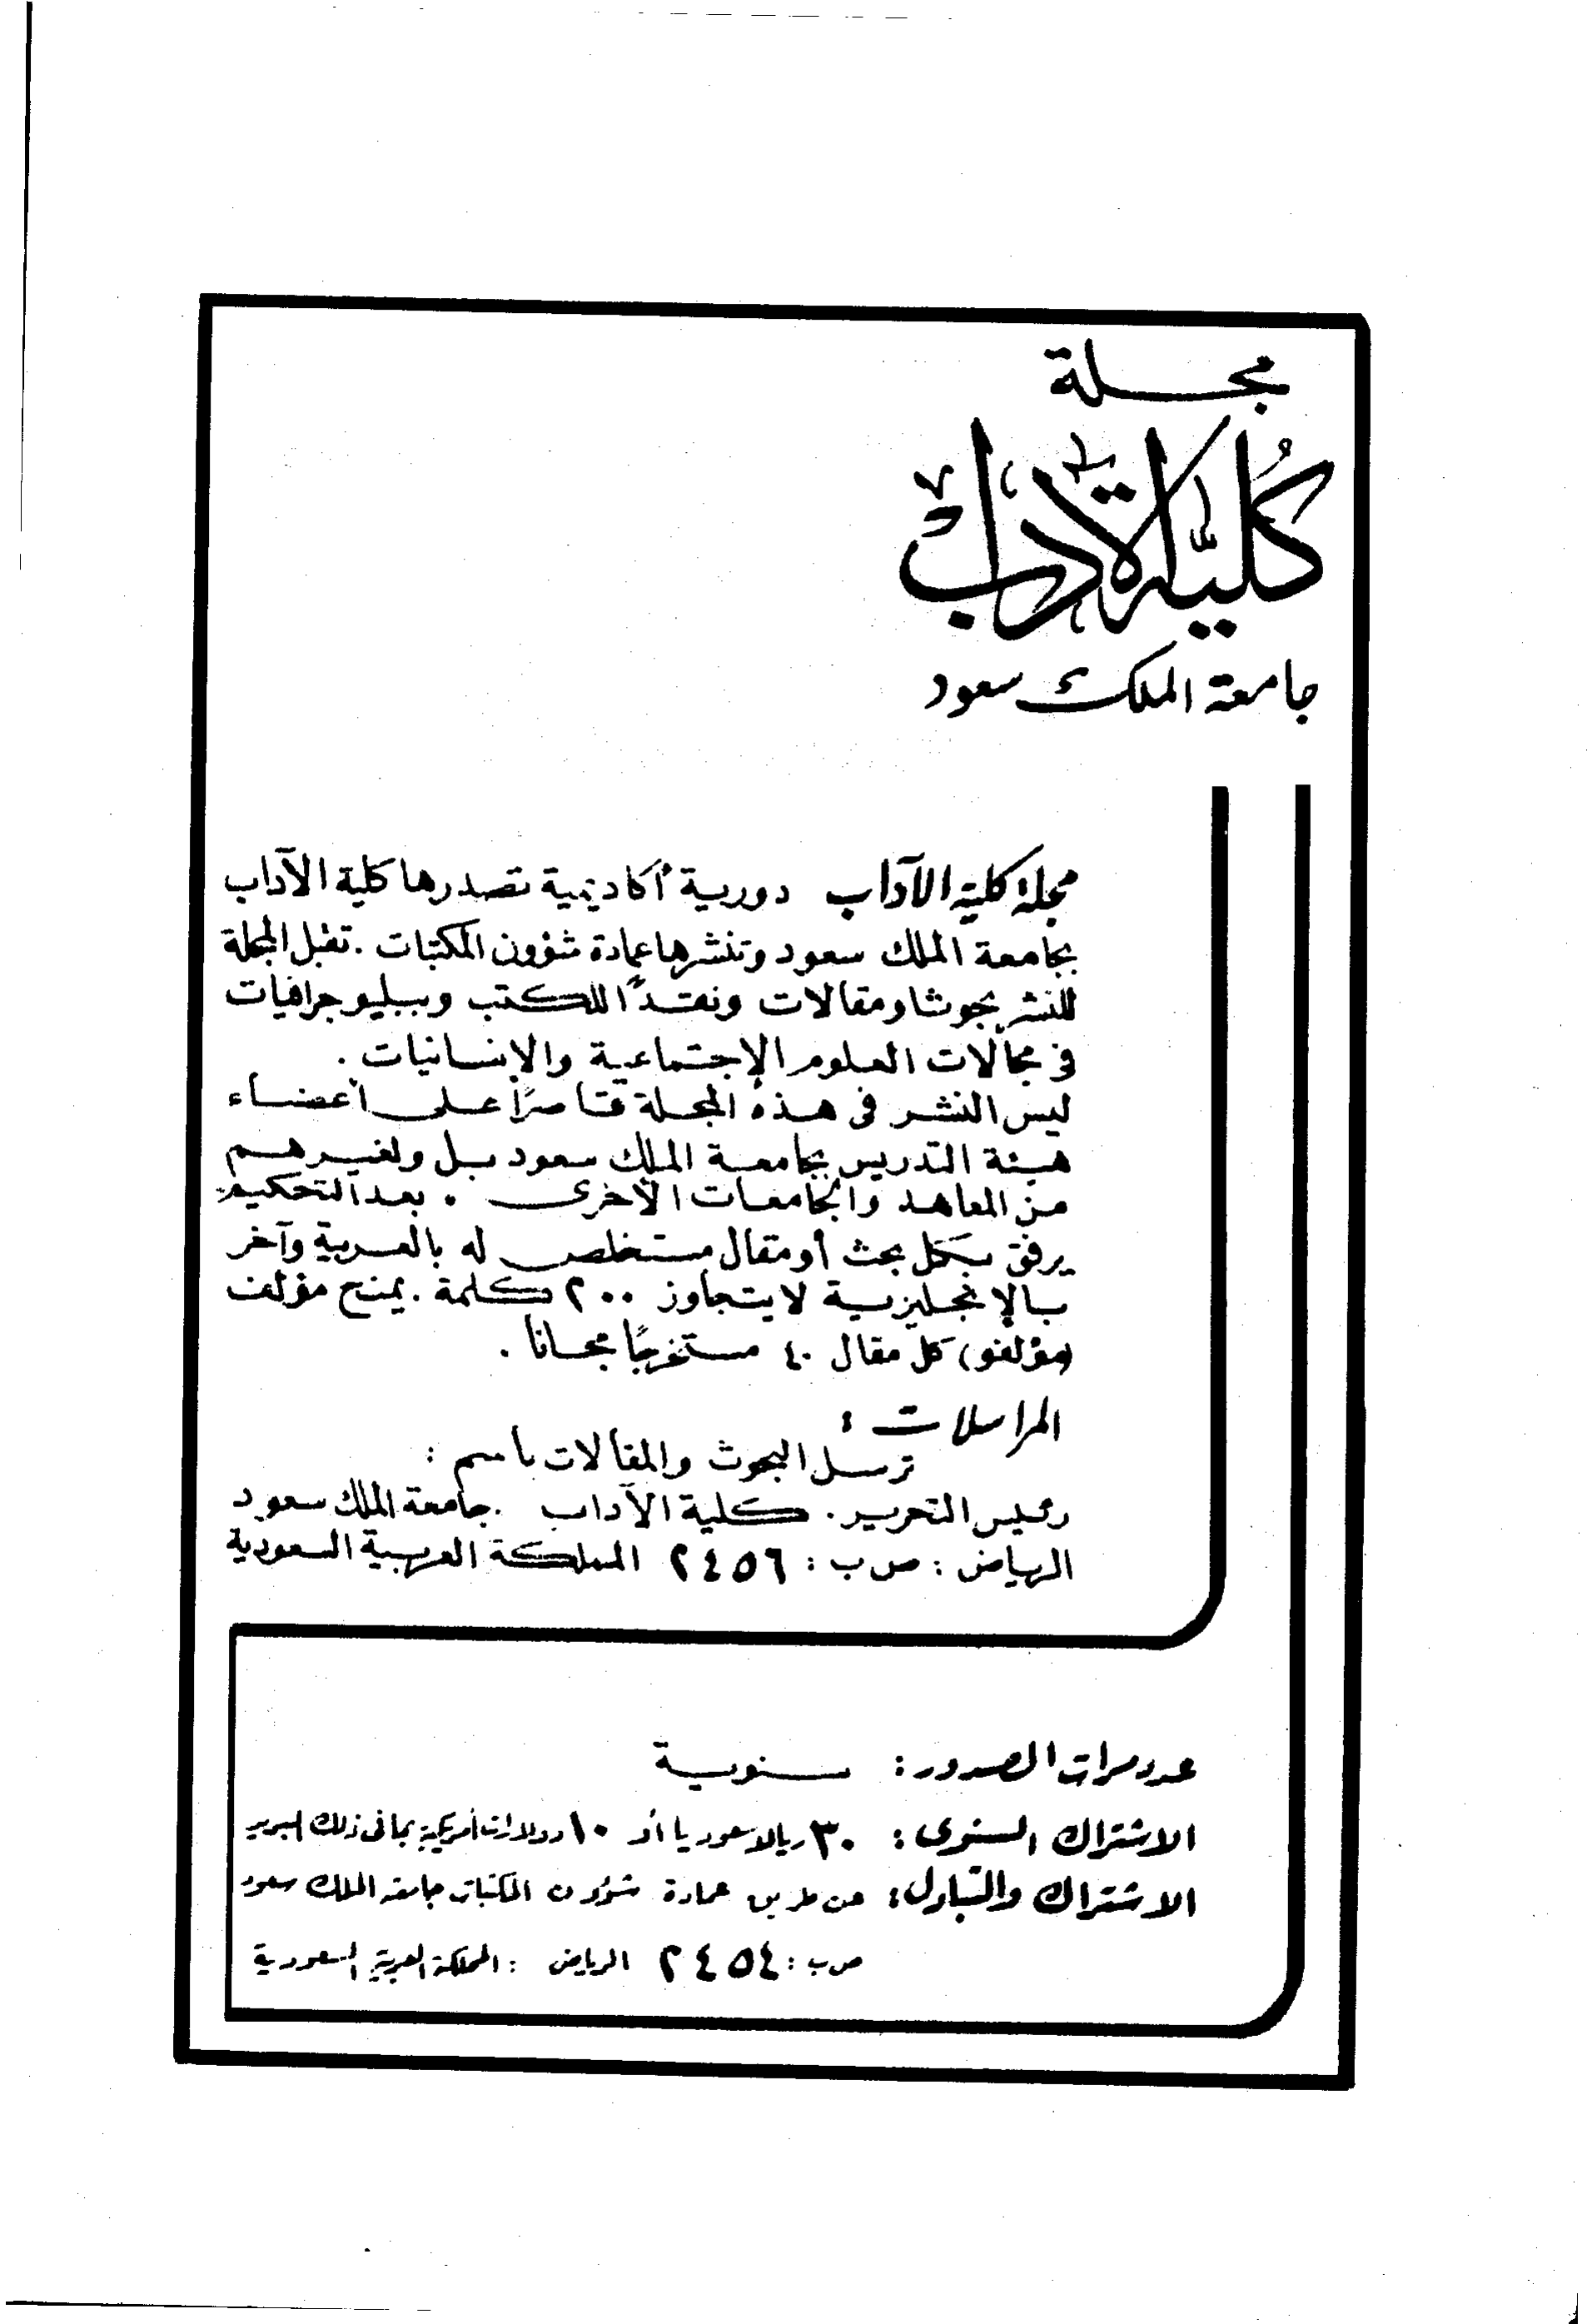 مجلة
كُليَّة الآداب
جامعة الملك سعود
مجلة كلية الآداب دورية أكاديمية تصدرها كلية الآداب
بجامعة الملك سعود وتنشرها عمادة شؤون المكتبات . تقبل المجلة
للنشر بحوثا ومقالات ونقدًا للكتب وببليوجرافيات
في مجالات العلوم الإجتماعية والإنسانيات .
ليس النشر في هذه المجلة قاصرًا على أعضاء
هيئة التدريس بجامعة الملك سعود بل ولغيرهم
من المعاهد والجامعات الأخرى . بعد التحكيم
يرفق بكل بحث أو مقال مستخلص له بالعربية وآخر
بالإنجليزية لا يتجاوز ٢٠٠ كلمة . يمنح مؤلف
(مؤلفو) كل مقال ٤٠ مستخرجًا مجانا .
المراسلات :
ترسل البحوث والمقالات بأسم :
رئيس التحرير . كلية الآداب . جامعة الملك سعود
الرياض : ص ب : ٢٤٥٦ المملكة العربية السعودية
عدد مرات الصدور : سنوية
الاشتراك السنوى : ٣٠ ريالا سعوديا أو ١٠ دولارات أمريكية بما في ذلك البريد
الاشتراك والتبادل : عن طريق عمادة شؤون المكتبات جامعة الملك سعود
ص ب : ٢٤٥٤ الرياض : المملكة العربية السعودية